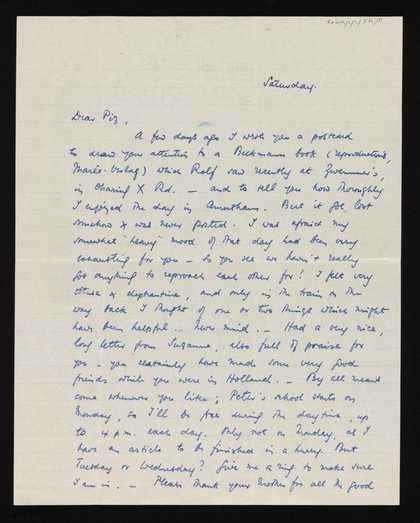 Saturday.
Dear Piz,
A few days ago I wrote you a postcard
to draw your attention to a Beckmann book (reproductions,
Marées-Verlag) which Ralf saw recently at Zwemmer's,
in Charing X Rd. — and to tell you how thoroughly
I enjoyed the day in Amersham. But it got lost
somehow & was never posted. I was afraid my
somewhat "heavy" mood of that day had been very
exhausting for you — so you see we haven't really
got anything to reproach each other for! I felt very
obtuse & elephantine, and only in the train on the
way back I thought of one or two things which might
have been helpful .. never mind. — Had a very nice,
long letter from Suzanne, also full of praise for
you. You certainly have made some very good
friends while you were in Holland. — By all means
come whenever you like; Peter's school starts on
Monday, so I'll be free during the daytime, up
to 4 p.m. each day. Only not on Monday, as I
have an article to be finished in a hurry. But
Tuesday or Wednesday? Give me a ring to make sure
I am in. — Please thank your Mother for all the good